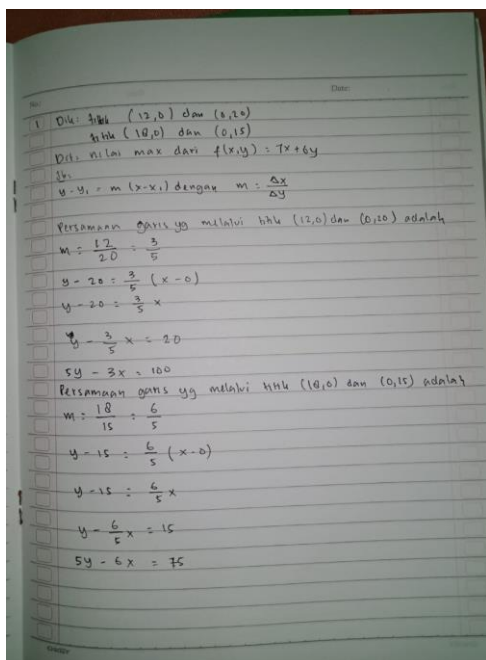 No:
Date:
1 Dik: titik (12,0) dan (0,20)
titik (18,0) dan (0,15)
Dit: nilai max dari f(x,y) = 7x+6y
Jb.
y-y₁ = m (x-x₁) dengan m = Δx/Δy
Persamaan garis yg melalui titik (12,0) dan (0,20) adalah
m = 12/20 = 3/5
y - 20 = 3/5 (x - 0)
y - 20 = 3/5 x
y - 3/5 x = 20
5y - 3x = 100
Persamaan garis yg melalui titik (18,0) dan (0,15) adalah
m = 18/15 = 6/5
y - 15 = 6/5 (x - 0)
y - 15 = 6/5 x
y - 6/5 x = 15
5y - 6x = 75